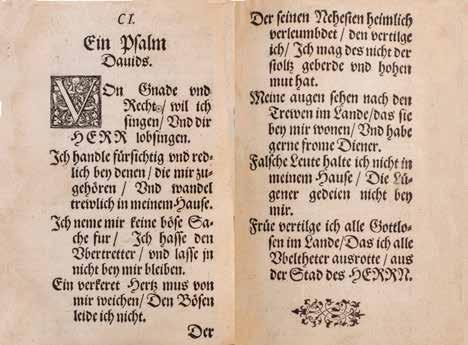 CI.
Ein Psalm
Dauids.
VOn Gnade vnd
Recht/ wil ich
singen/ Vnd dir
HERR lobsingen.
Ich handle fürsichtig vnd red-
lich bey denen/ die mir zu-
gehören/ Vnd wandel
trewlich in meinem Hause.
Ich neme mir keine böse Sa-
che fur/ Ich hasse den
Vbertretter/ vnd lasse jn
nicht bey mir bleiben.
Ein verkeret Hertz mus von
mir weichen/ Den Bösen
leide ich nicht.
Der
Der seinen Nehesten heimlich
verleumbdet/ den vertilge
ich/ Ich mag des nicht der
stoltz geberde vnd hohen
mut hat.
Meine augen sehen nach den
Trewen im Lande/das sie
bey mir wonen/ Vnd habe
gerne frome Diener.
Falsche Leute halte ich nicht in
meinem Hause/ Die Lü-
gener gedeien nicht bey
mir.
Früe vertilge ich alle Gottlo-
sen im Lande/Das ich alle
Vbeltheter ausrotte/ aus
der Stad des HERRN.